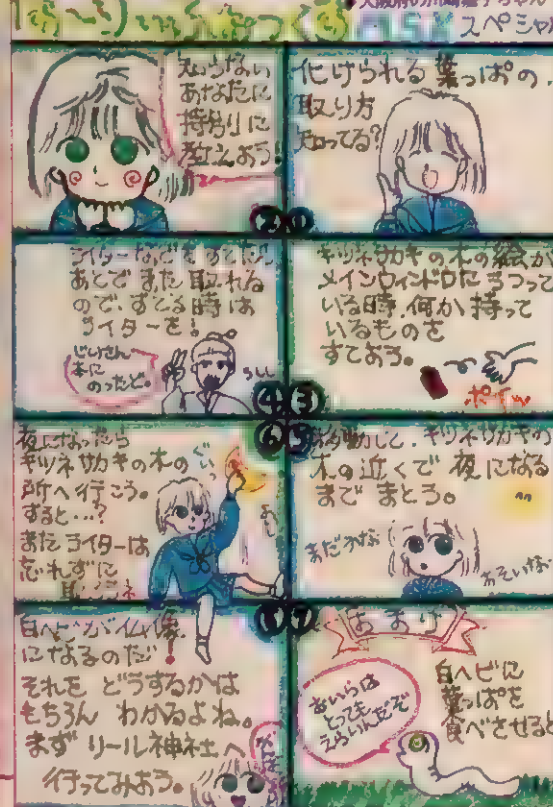 大阪府の
スペシャル
化けられる葉っぱの、
取り方
知ってる?
知らない
あなたに
特別に
教えよう!
キツネサカキの木の絵が
メインウィンドウにうつって
いる時、何か持って
いるものを
すてよう。
ポイッ
ライターなどをすてたら
あとでまた取れる
ので、すてる時は
ライターを!
じいさん
本に
のったど。
移動して、キツネサカキの
木の近くで夜になる
までまとう。
まだかな
おそいな
夜になったら
キツネサカキの木の
所へ行こう。
すると…?
またライターは
忘れずに
おまけ
白ヘビに
葉っぱを
食べさせると
おいらは
とっても
えらいんだぞ
白ヘビが仏像
になるのだ!
それをどうするかは
もちろんわかるよね。
まずリール神社へ
行ってみよう。